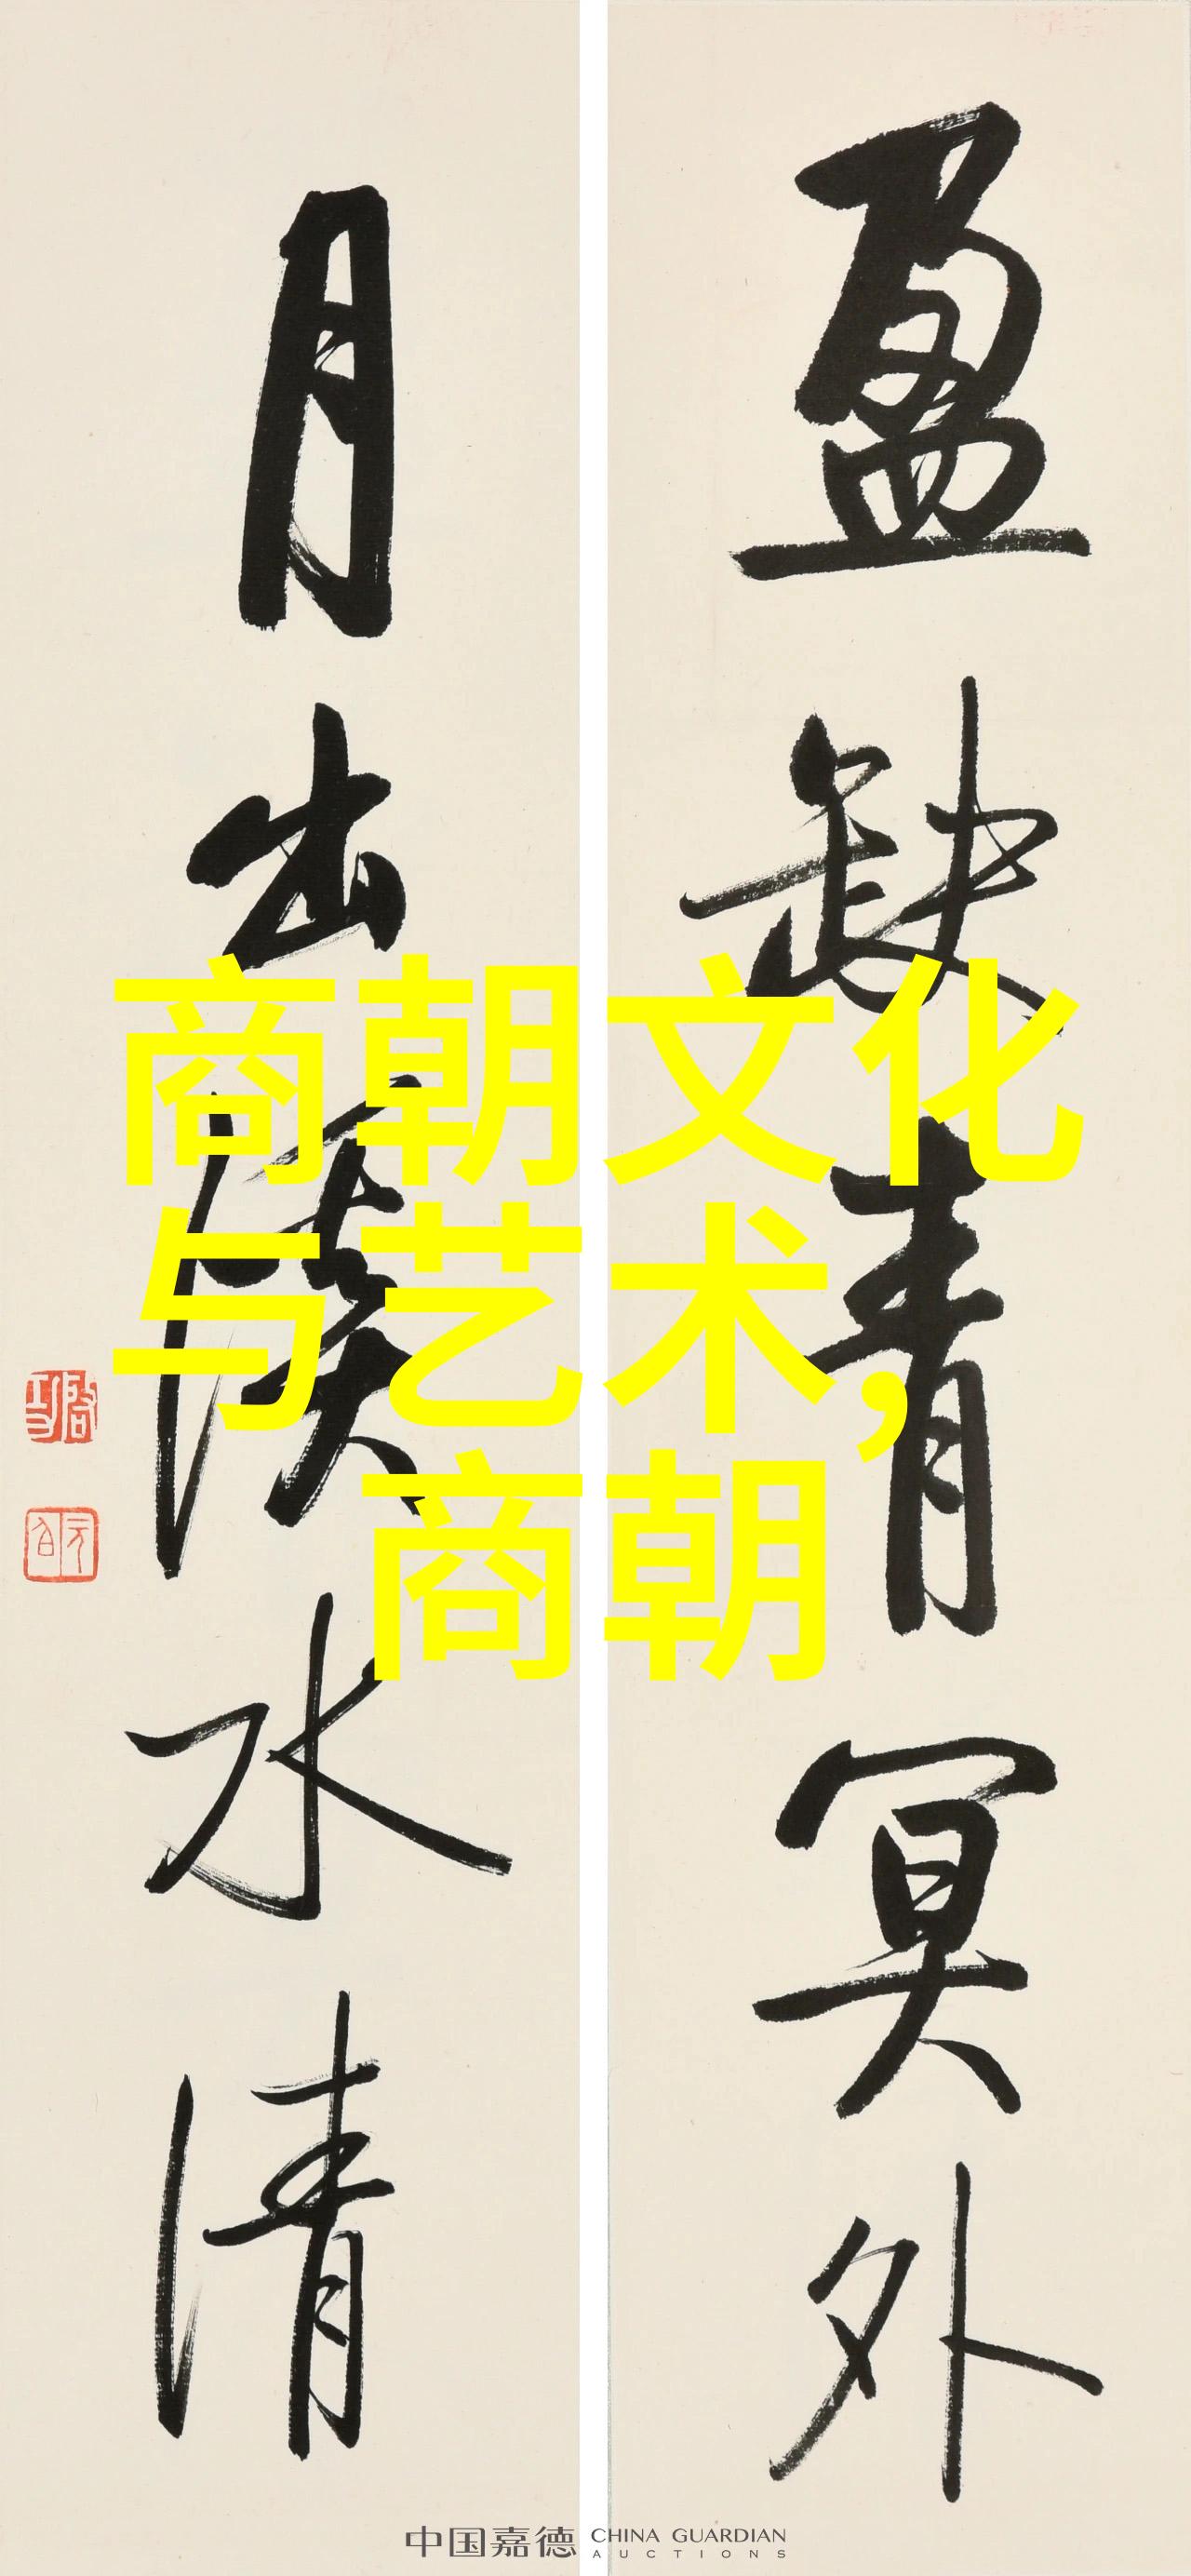 盈缺青冥外
月出溪水清
商朝文化
与艺术,
商朝
啟功
元白
中国嘉德 CHINA GUARDIAN
AUCTIONS